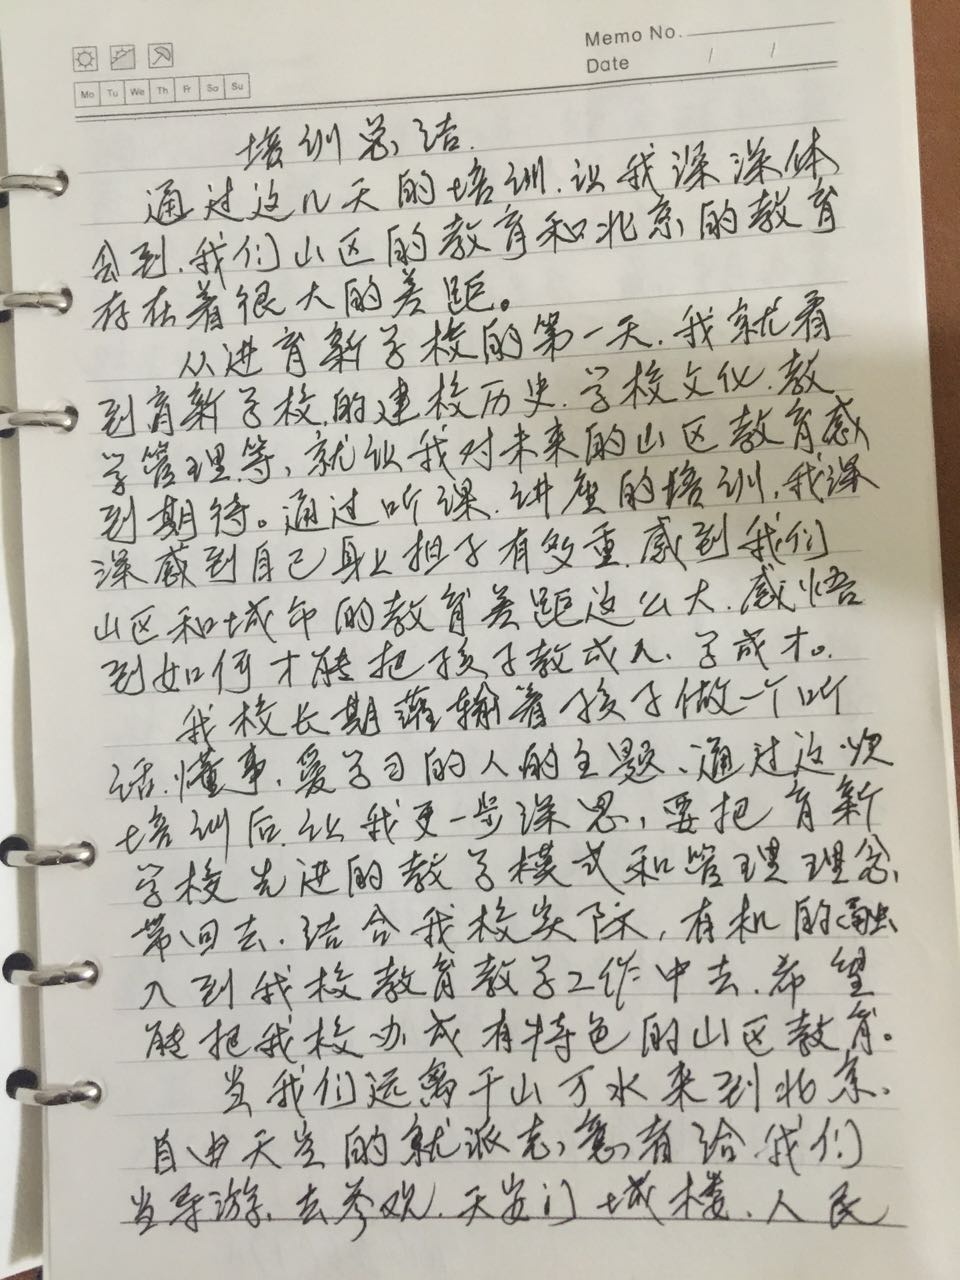 Memo No.
Date / /
Mo Tu We Th Fr Sa Su
培训总结.
通过这几天的培训.让我深深体
会到.我们山区的教育和北京的教育
存在着很大的差距。
从进育新学校的第一天.我就看
到育新学校的建校历史.学校文化.教
学管理等,就让我对未来的山区教育感
到期待。通过听课.讲座的培训,我深
深感到自己身上担子有多重.感到我们
山区和城市的教育差距这么大.感悟
到如何才能把孩子教成人、学成才。
我校长期灌输着孩子做一个听
话.懂事.爱学习的人的主题、通过这次
培训后.让我更一步深思,要把育新
学校先进的教学模式和管理理念,
带回去.结合我校实际,有机的融
入到我校教育教学工作中去.希望
能把我校办成有特色的山区教育。
当我们远离千山万水来到北京.
自由天里的就派志愿者给我们
当导游,去参观.天安门城楼.人民